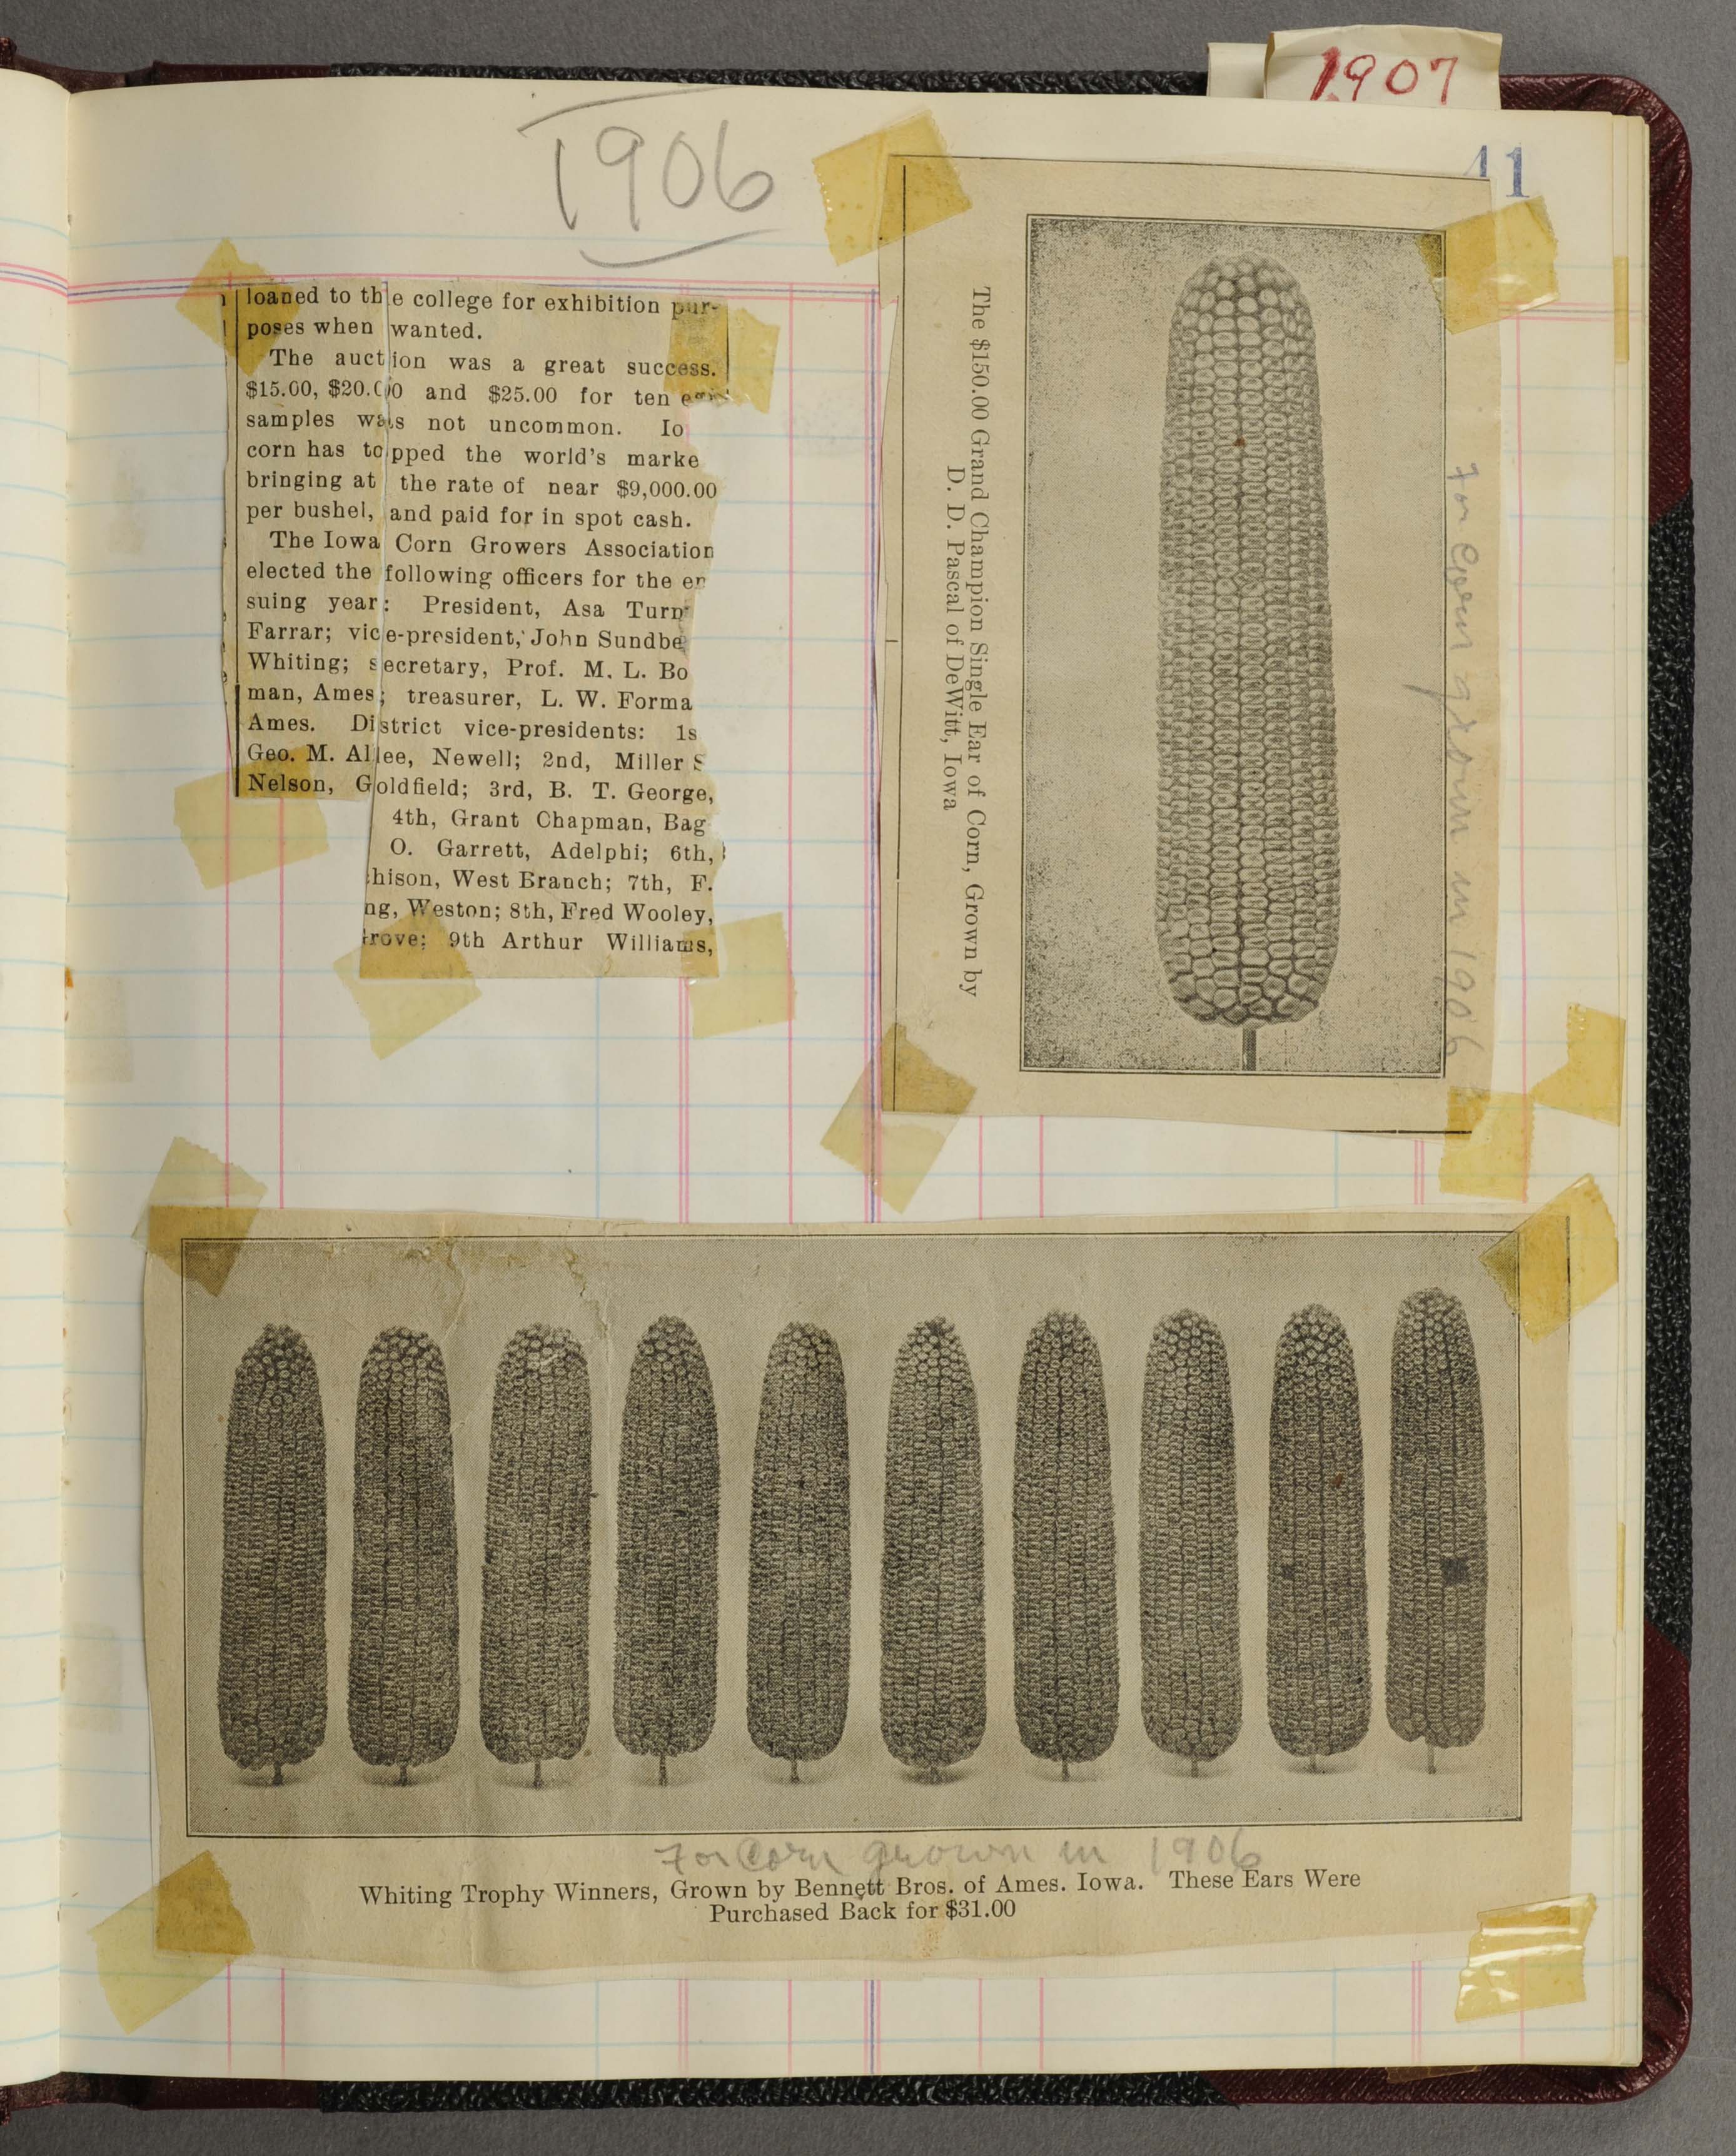 1907
1906
41
loaned to the college for exhibition pur-
poses when wanted.
The auction was a great success.
$15.00, $20.00 and $25.00 for ten
samples was not uncommon. Io
corn has topped the world's marke
bringing at the rate of near $9,000.00
per bushel, and paid for in spot cash.
The Iowa Corn Growers Association
elected the following officers for the en
suing year: President, Asa Turn
Farrar; vice-president, John Sundbe
Whiting; secretary, Prof. M. L. Bo
man, Ames; treasurer, L. W. Forma
Ames. District vice-presidents: 1s
Geo. M. Allee, Newell; 2nd, Miller S
Nelson, Goldfield; 3rd, B. T. George,
4th, Grant Chapman, Bag
O. Garrett, Adelphi; 6th,
hison, West Branch; 7th, F.
ng, Weston; 8th, Fred Wooley,
rove; 9th Arthur Williams,
The $150.00 Grand Champion Single Ear of Corn, Grown by
D. D. Pascal of DeWitt, Iowa
For Corn grown in 1906
For Corn grown in 1906
Whiting Trophy Winners, Grown by Bennett Bros. of Ames. Iowa. These Ears Were
Purchased Back for $31.00